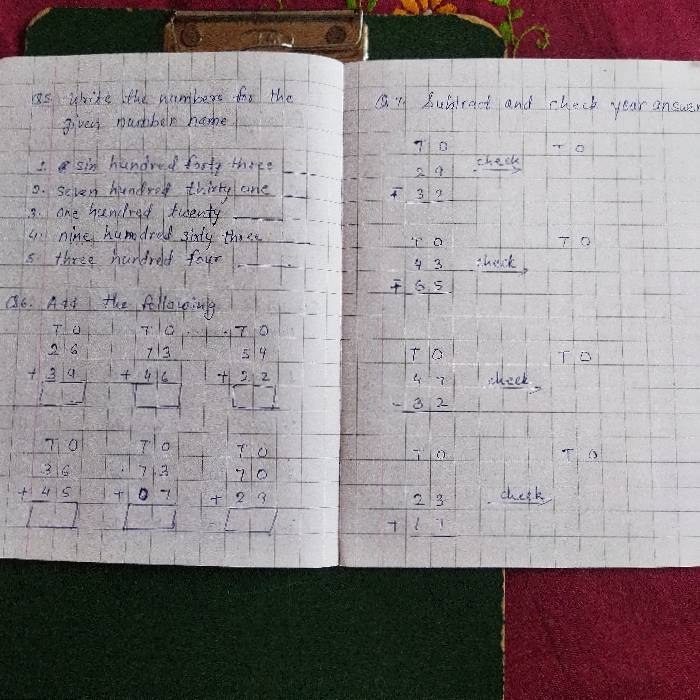 Q5. Write the numbers for the
given number name
1. six hundred forty three
2. seven hundred thirty one
3. one hundred twenty
4. nine hundred sixty three
5. three hundred four
Q6. Add the following
T O T O T O
2 6 7 3 5 4
+ 3 9 + 4 6 + 2 2
T O T O T O
3 6 7 3 7 0
+ 4 5 + 0 7 + 2 3
Q 7. Subtract and check year answer
T O T O
2 9 check
+ 3 2
T O T O
4 3 check
+ 6 5
T O T O
4 7 check
- 3 2
T O T O
2 3 check
+ 1 1